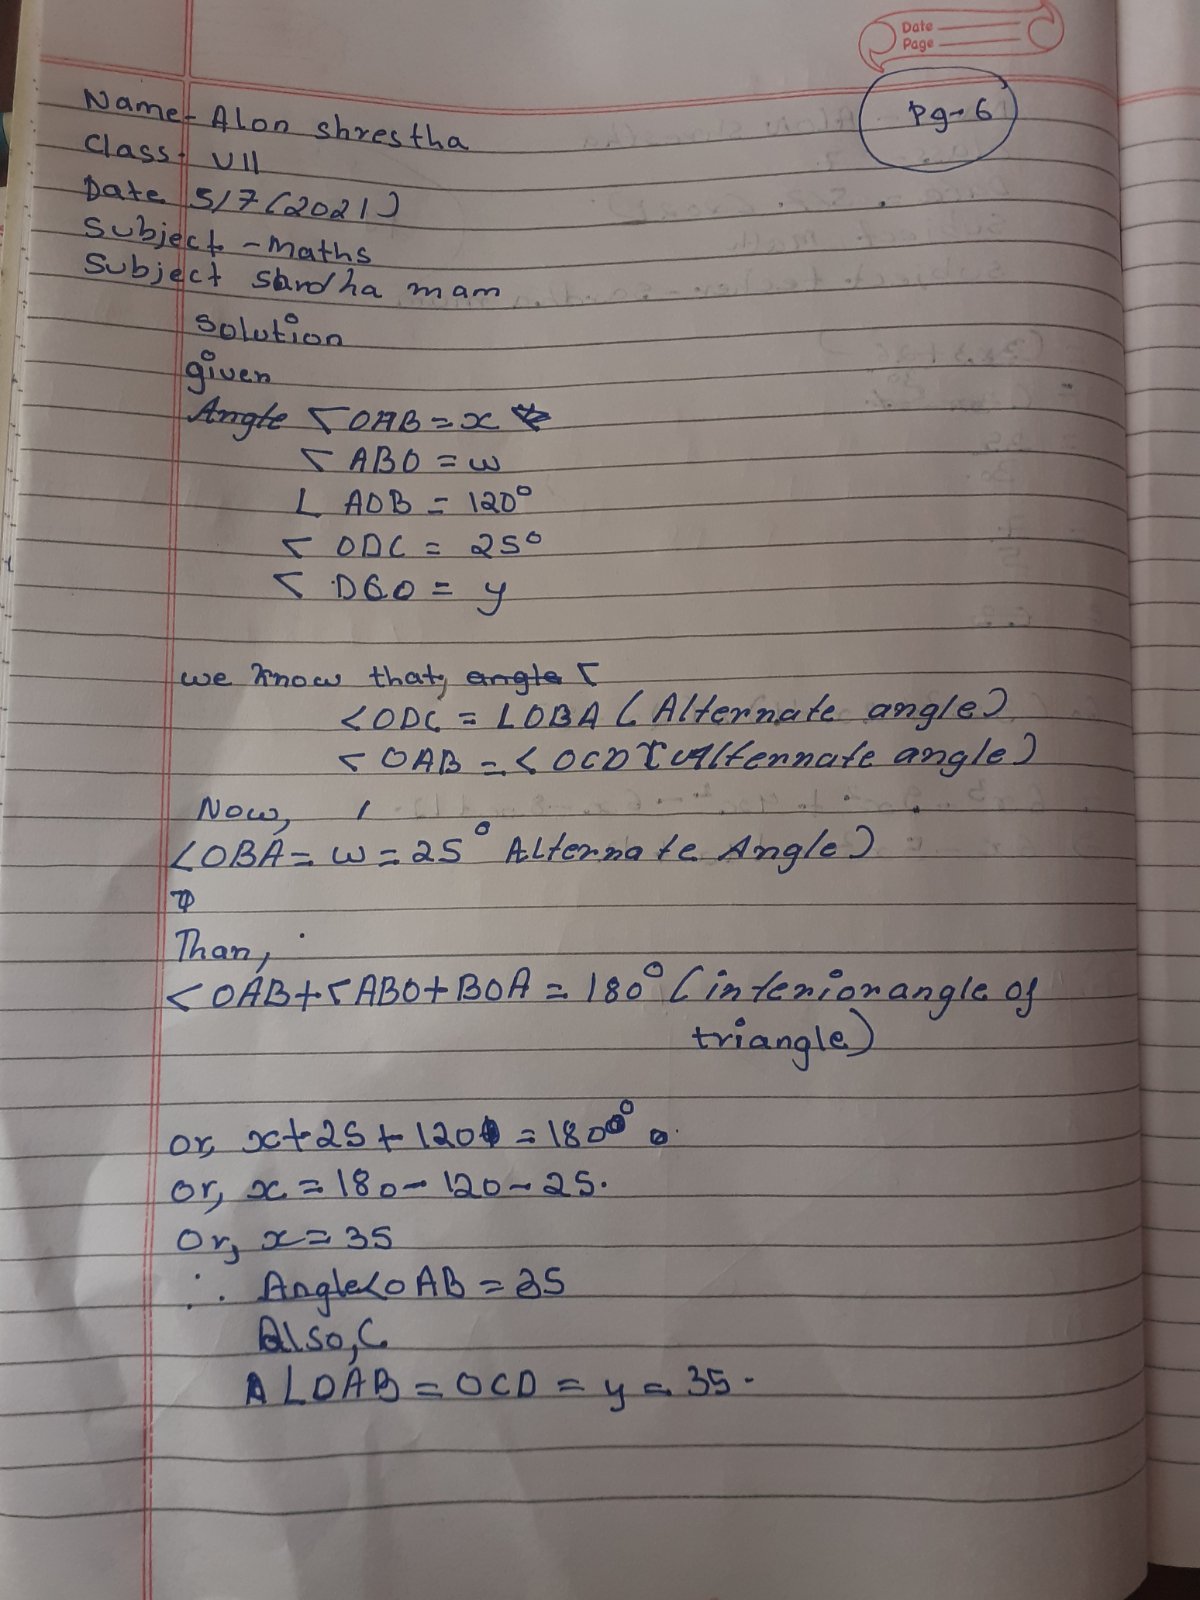 Date
Page
Pg-6
Name- Alon Shrestha
Class- VII
Date 5/7(2021)
Subject - Maths
Subject Shrdha mam
Solution
given
Angle <OAB = x
<ABO = w
∠AOB = 120°
<ODC = 25°
<DCO = y
we know that, angle <
<ODC = ∠OBA (Alternate angle)
<OAB = <OCD (Alternate angle)
Now,
<OBA = w = 25° Alternate Angle)
Than,
<OAB+<ABO+BOA = 180° (interior angle of
triangle)
or, x+25+120 = 180°
or, x = 180-120-25.
Or, x = 35
∴ Angle<OAB = 35
Also, C
∠OAB = OCD = y = 35.